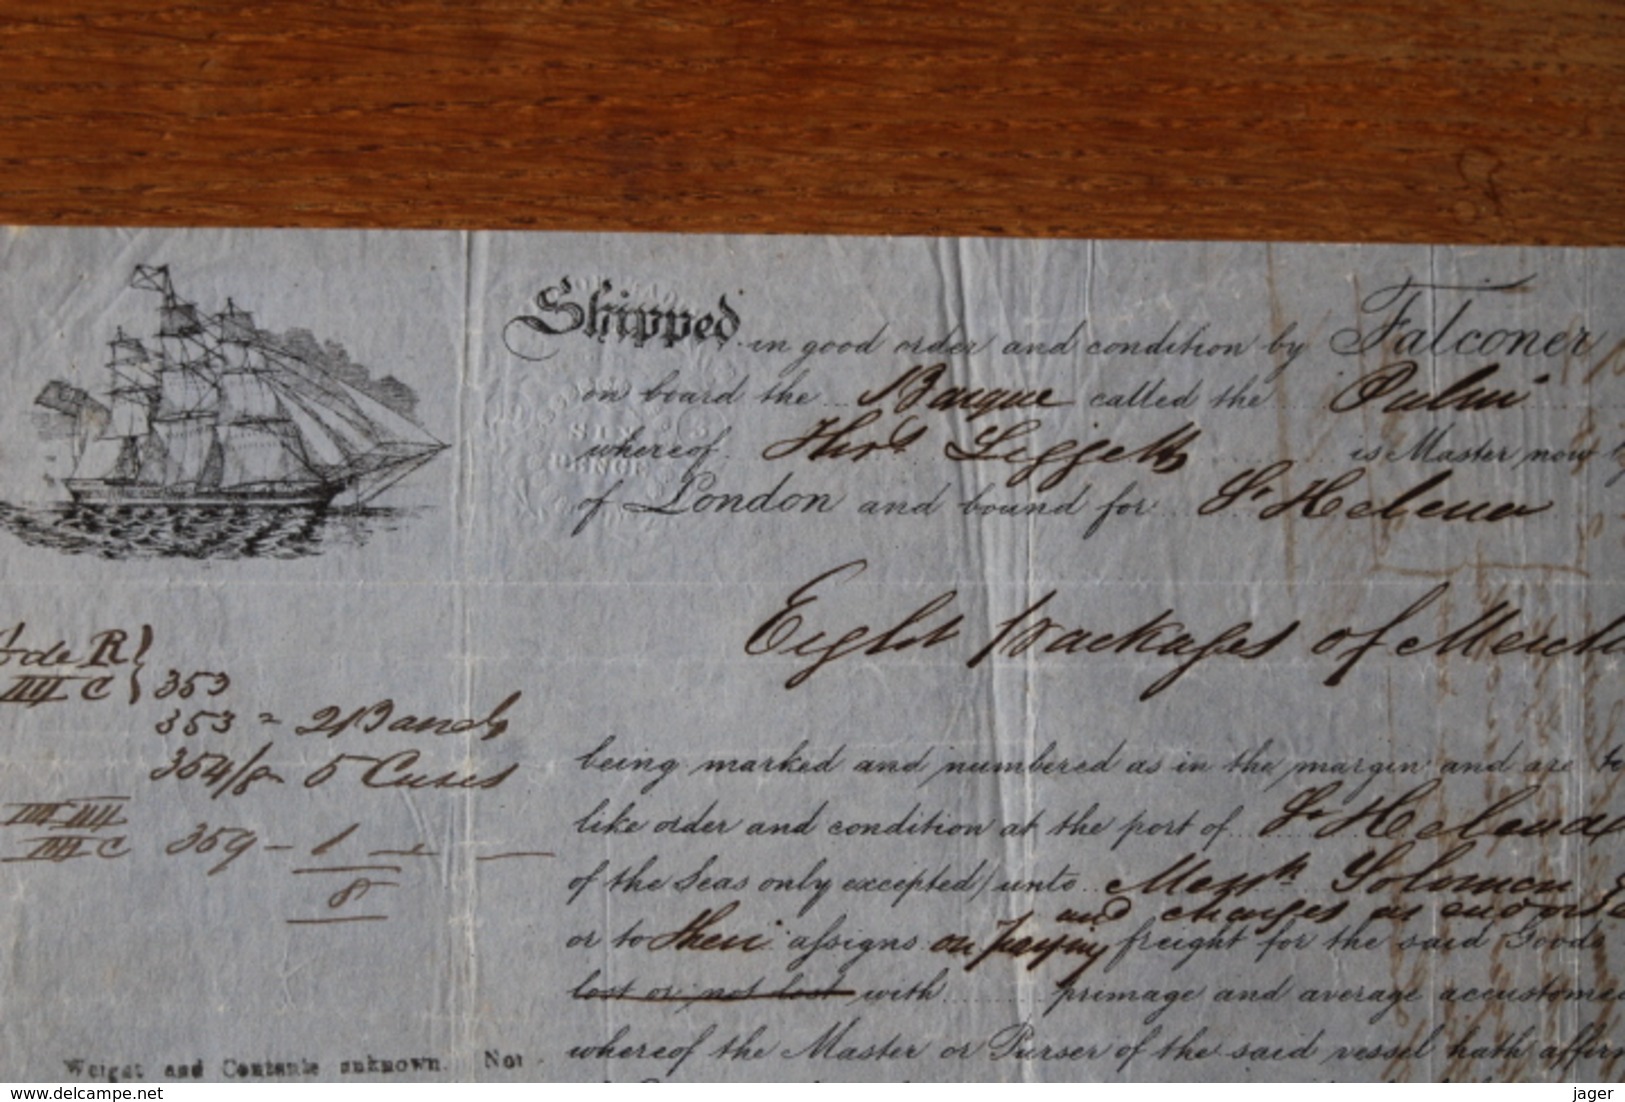 Shipped in good order and condition by Falconer
on board the Barque called the
whereof Thos Leggett is Master now
of London and bound for St Helena
SIX
PENCE
Eight packages of
de R
IIII C 353
353 = 2 Bands
354/8 - 5 Cases
359 - 1
8
being marked and numbered as in the margin and are to
like order and condition at the port of St Helena
of the Seas only excepted) unto Messrs Solomon
and charges as endorse
or to their assigns on paying freight for the said Goods
lost or not lost with primage and average accustomed
whereof the Master or Purser of the said vessel hath affirm
Weight and Contents unknown. Not
delcampe.net
jager